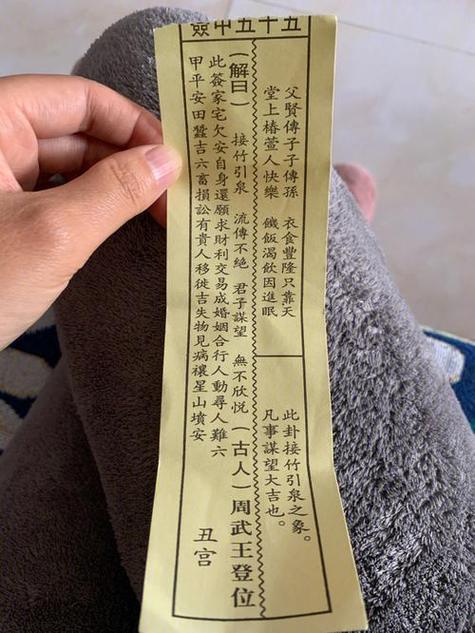 五十五中簽
父賢傳子子傳孫 衣食豐隆只靠天
堂上椿萱人快樂 饑飯渴飲因進眠
此卦接竹引泉之象。
凡事謀望大吉也。
(解曰) 接竹引泉 流傳不絕 君子謀望 無不欣悅 (古人) 周武王登位
此簽家宅欠安自身還願求財利交易成婚姻合行人動尋人難六
甲平安田蠶吉六畜損訟有貴人移徙吉失物見病禳星山墳安
丑宮